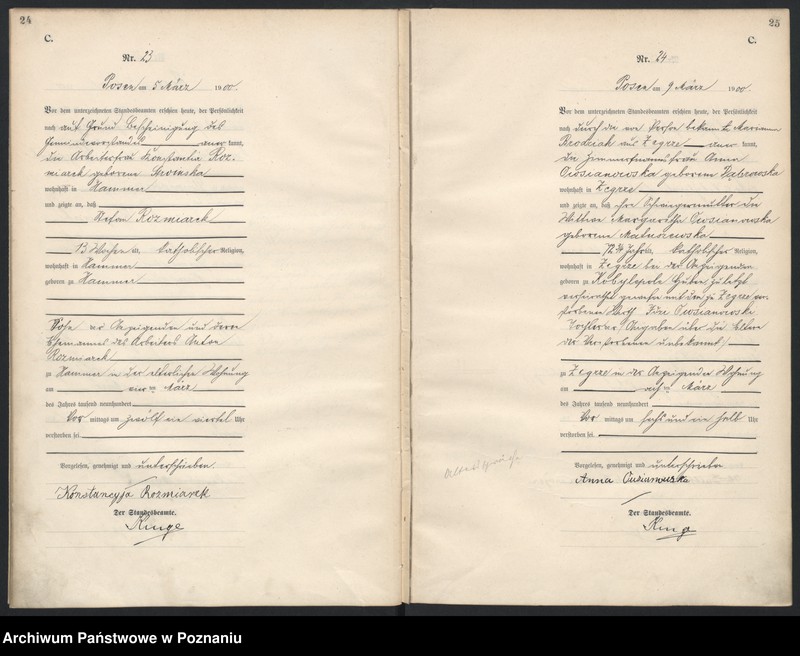 24
C.
Nr. 23
Posen am 5 März 1900.
Vor dem unterzeichneten Standesbeamten erschien heute, der Persönlichkeit
nach auf Grund Bescheinigung des
kannt,
die Arbeiterfrau Konstantia Roz-
miarek geborene
wohnhaft in Hammer
und zeigte an, daß
Stefan Rozmiarek
13 Wochen alt, katholischer Religion,
wohnhaft in Hammer
geboren zu Hammer
Sohn der Anzeigenden und deren
Ehemannes des Arbeiters Anton
Rozmiarek
zu Hammer in der elterlichen Wohnung
am vier ten März
des Jahres tausend neunhundert
Vor mittags um zwölf ein viertel Uhr
verstorben sei.
Vorgelesen, genehmigt und unterschrieben.
Konstancyja Rozmiarek
Der Standesbeamte.
25
C.
Nr. 24
Posen am 9 März 1900.
Vor dem unterzeichneten Standesbeamten erschien heute, der Persönlichkeit
nach durch die von Person bekannte Marianna
Brodziak aus Zegrze kannt,
die Zimmermannsfrau Anna
geborene Dąbrowska
wohnhaft in Zegrze
und zeigte an, daß ihre Schwiegermutter die
Wittwe Margaretha
geborene
72 3/4 Jahre alt, katholischer Religion,
wohnhaft in Zegrze bei der Anzeigenden
geboren zu Kobylepole zuletzt
verheirathet gewesen mit dem zu Zegrze ver-
storbenen
(Angaben über die Eltern
der Verstorbenen unbekannt)
zu Zegrze in der Anzeigenden Wohnung
am acht ten März
des Jahres tausend neunhundert
Vor mittags um sechs und ein halb Uhr
verstorben sei.
Vorgelesen, genehmigt und unterschrieben
Anna
Der Standesbeamte.
Archiwum Państwowe w Poznaniu